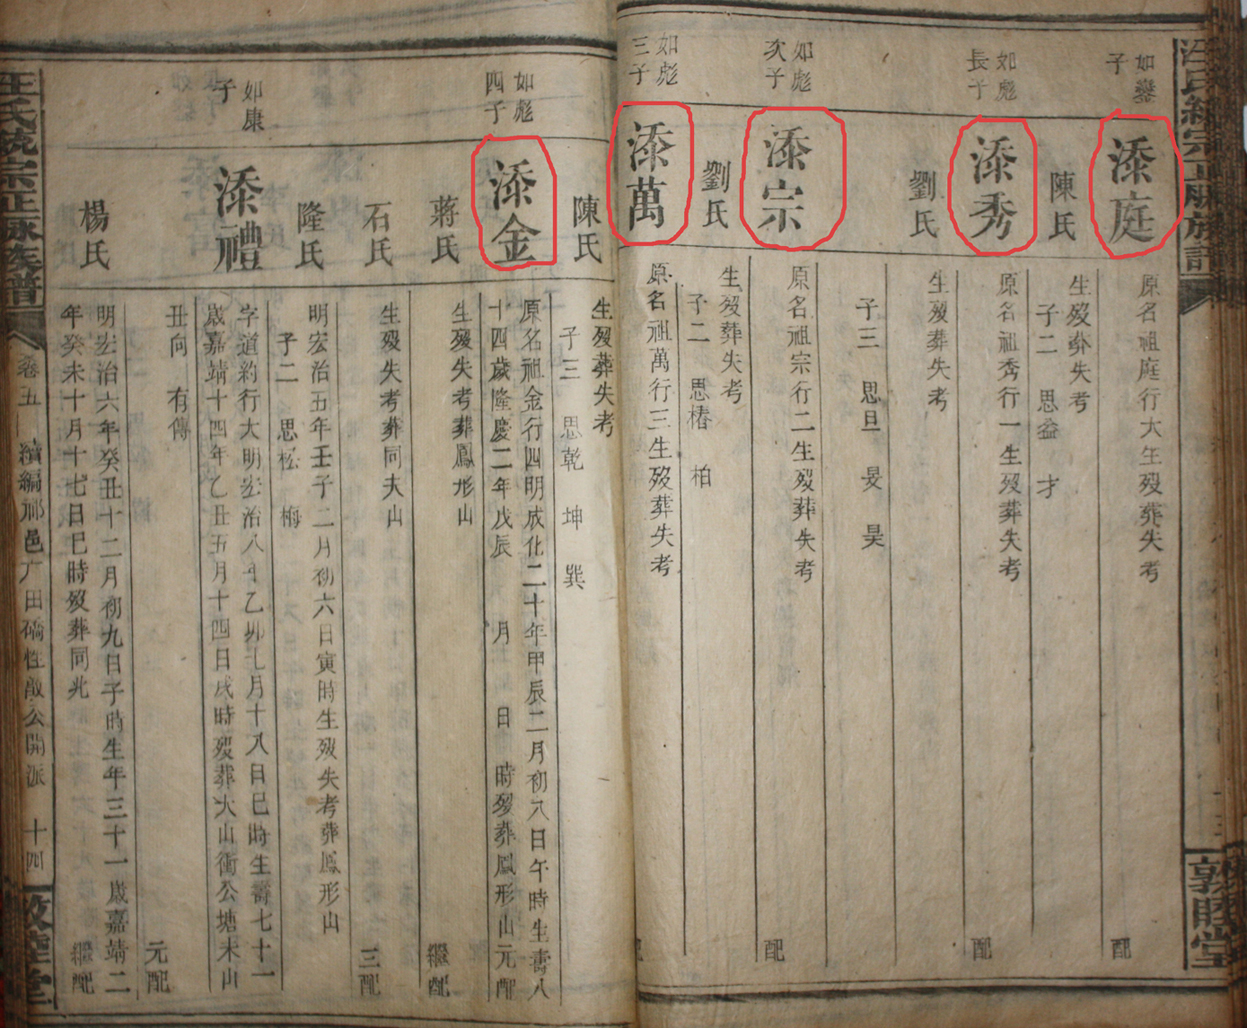 汪氏統宗正脉族譜
敦睦堂
如鑾
子
添庭
原名祖庭行大生殁葬失考
配
陳氏
生殁葬失考
子二 思益 才
如彪
長子
添秀
原名祖秀行一生殁葬失考
配
劉氏
生殁葬失考
子三 思旦 旻 昊
如彪
次子
添宗
原名祖宗行二生殁葬失考
配
劉氏
生殁葬失考
子二 思椿 柏
如彪
三子
添萬
原名祖萬行三生殁葬失考
陳氏
生殁葬失考
子三 思乾 坤 巽
如彪
四子
添金
原名祖金行四明成化二十年甲辰二月初八日午時生壽八
十四歲隆慶二年戊辰 月 日 時殁葬鳳形山元配
蔣氏
生殁失考葬鳳形山
繼配
石氏
生殁失考葬同夫山
三配
隆氏
明宏治五年壬子二月初六日寅時生殁失考葬鳳形山
子二 思松 梅
如康
子
添禮
字道約行大明宏治八年乙卯七月十八日巳時生壽七十一
歲嘉靖十四年乙丑五月十四日戌時殁葬火山衝公塘未山
丑向 有傳
元配
楊氏
明宏治六年癸丑十二月初九日子時生年三十一歲嘉靖二
年癸未十月十七日巳時殁葬同兆
繼配
汪氏統宗正脉族譜
卷五 續編祁邑广田礄性敵公開派 十四
敦睦堂